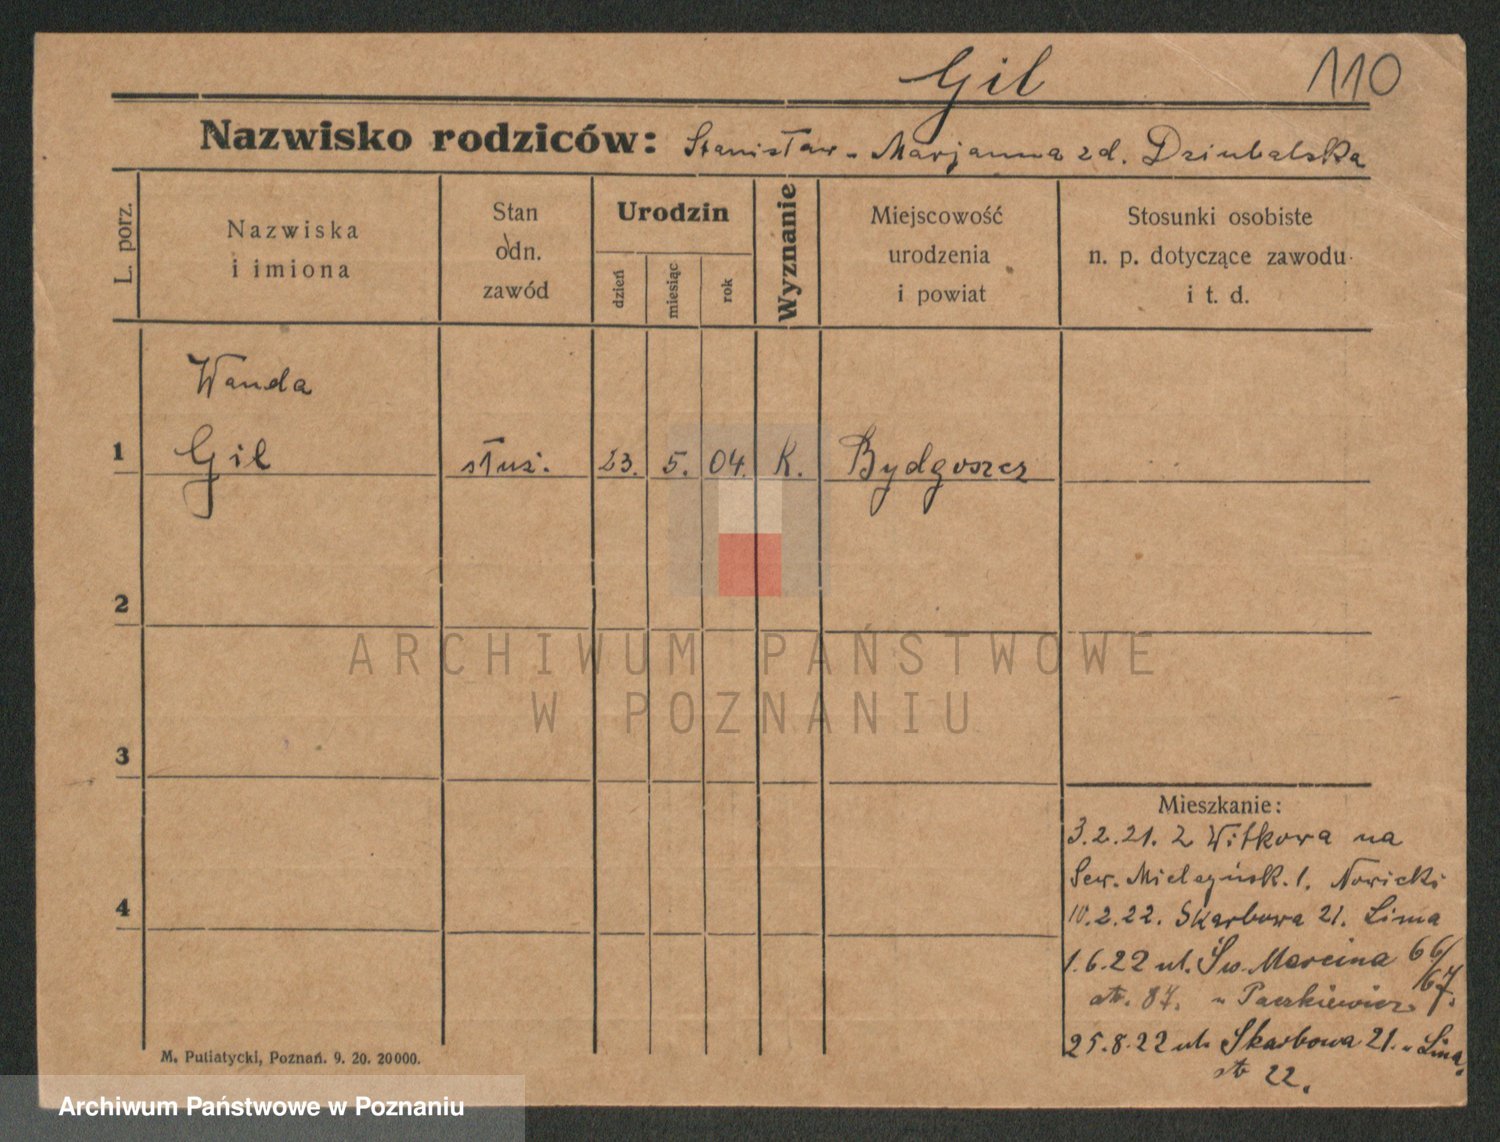 Gil 110
Nazwisko rodziców: Stanisław - Marjanna zd. Dziubalska
L. porz.
Nazwiska
i imiona
Stan
odn.
zawód
Urodzin
dzień
miesiąc
rok
Wyznanie
Miejscowość
urodzenia
i powiat
Stosunki osobiste
n. p. dotyczące zawodu
i t. d.
Wanda
1 Gil służ. 23. 5. 04. K. Bydgoszcz
2
3
4
ARCHIWUM PAŃSTWOWE
W POZNANIU
Mieszkanie:
3.2.21. z Witkowa na
Sew. Mielżyńsk. 1. Nowicki
10.2.22. Skarbowa 21.
1.6.22 ul. Św. Marcina 66/67.
87. Paczkiewicz
25.8.22 ul. Skarbowa 21.
22.
M. Putiatycki, Poznań. 9. 20. 20000.
Archiwum Państwowe w Poznaniu